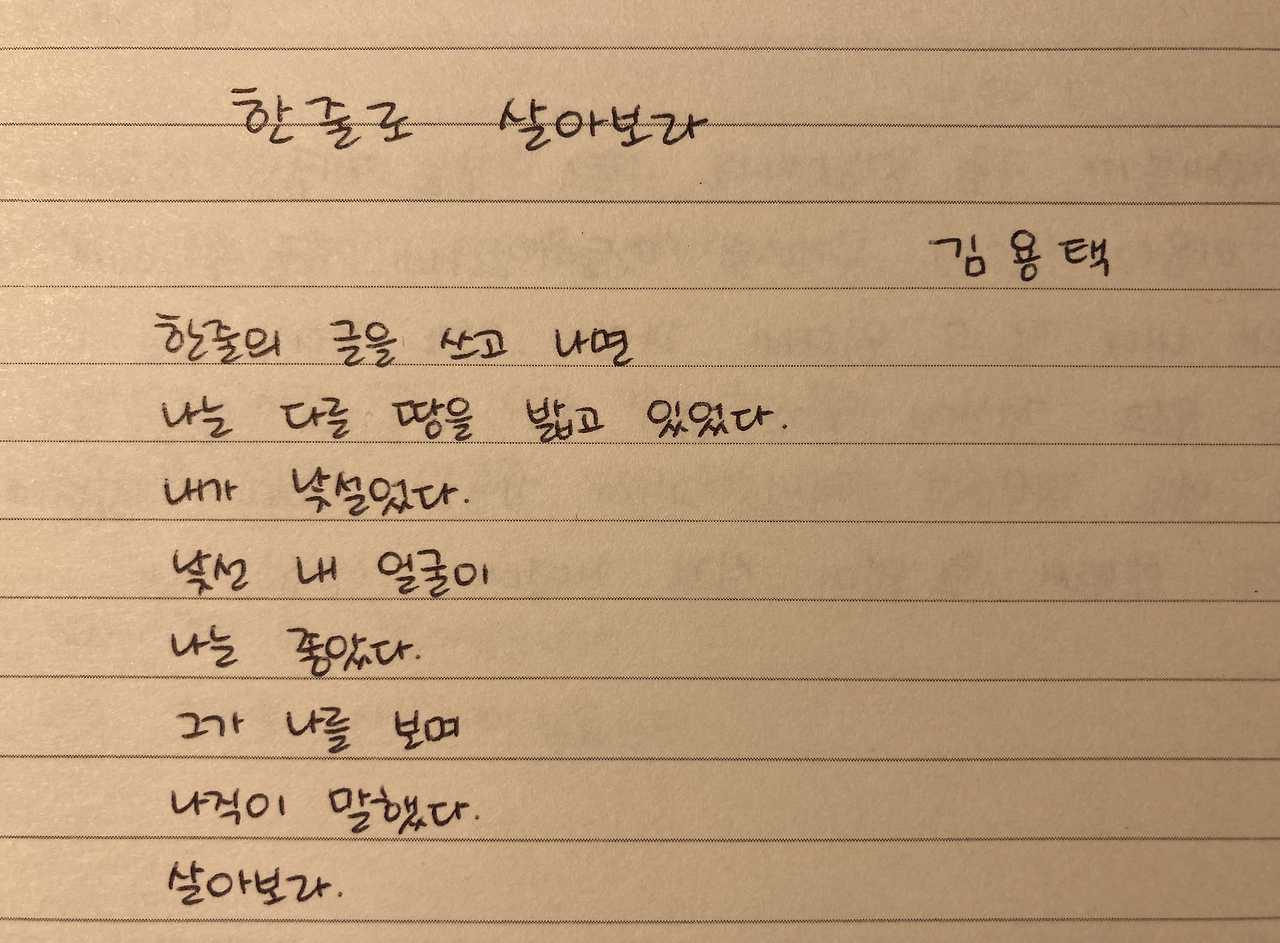 한줄로 살아보라
김용택
한줄의 글을 쓰고 나면
나는 다를 땅을 밟고 있었다.
내가 낯설었다.
낯선 내 얼굴이
나는 좋았다.
그가 나를 보며
나직이 말했다.
살아보라.